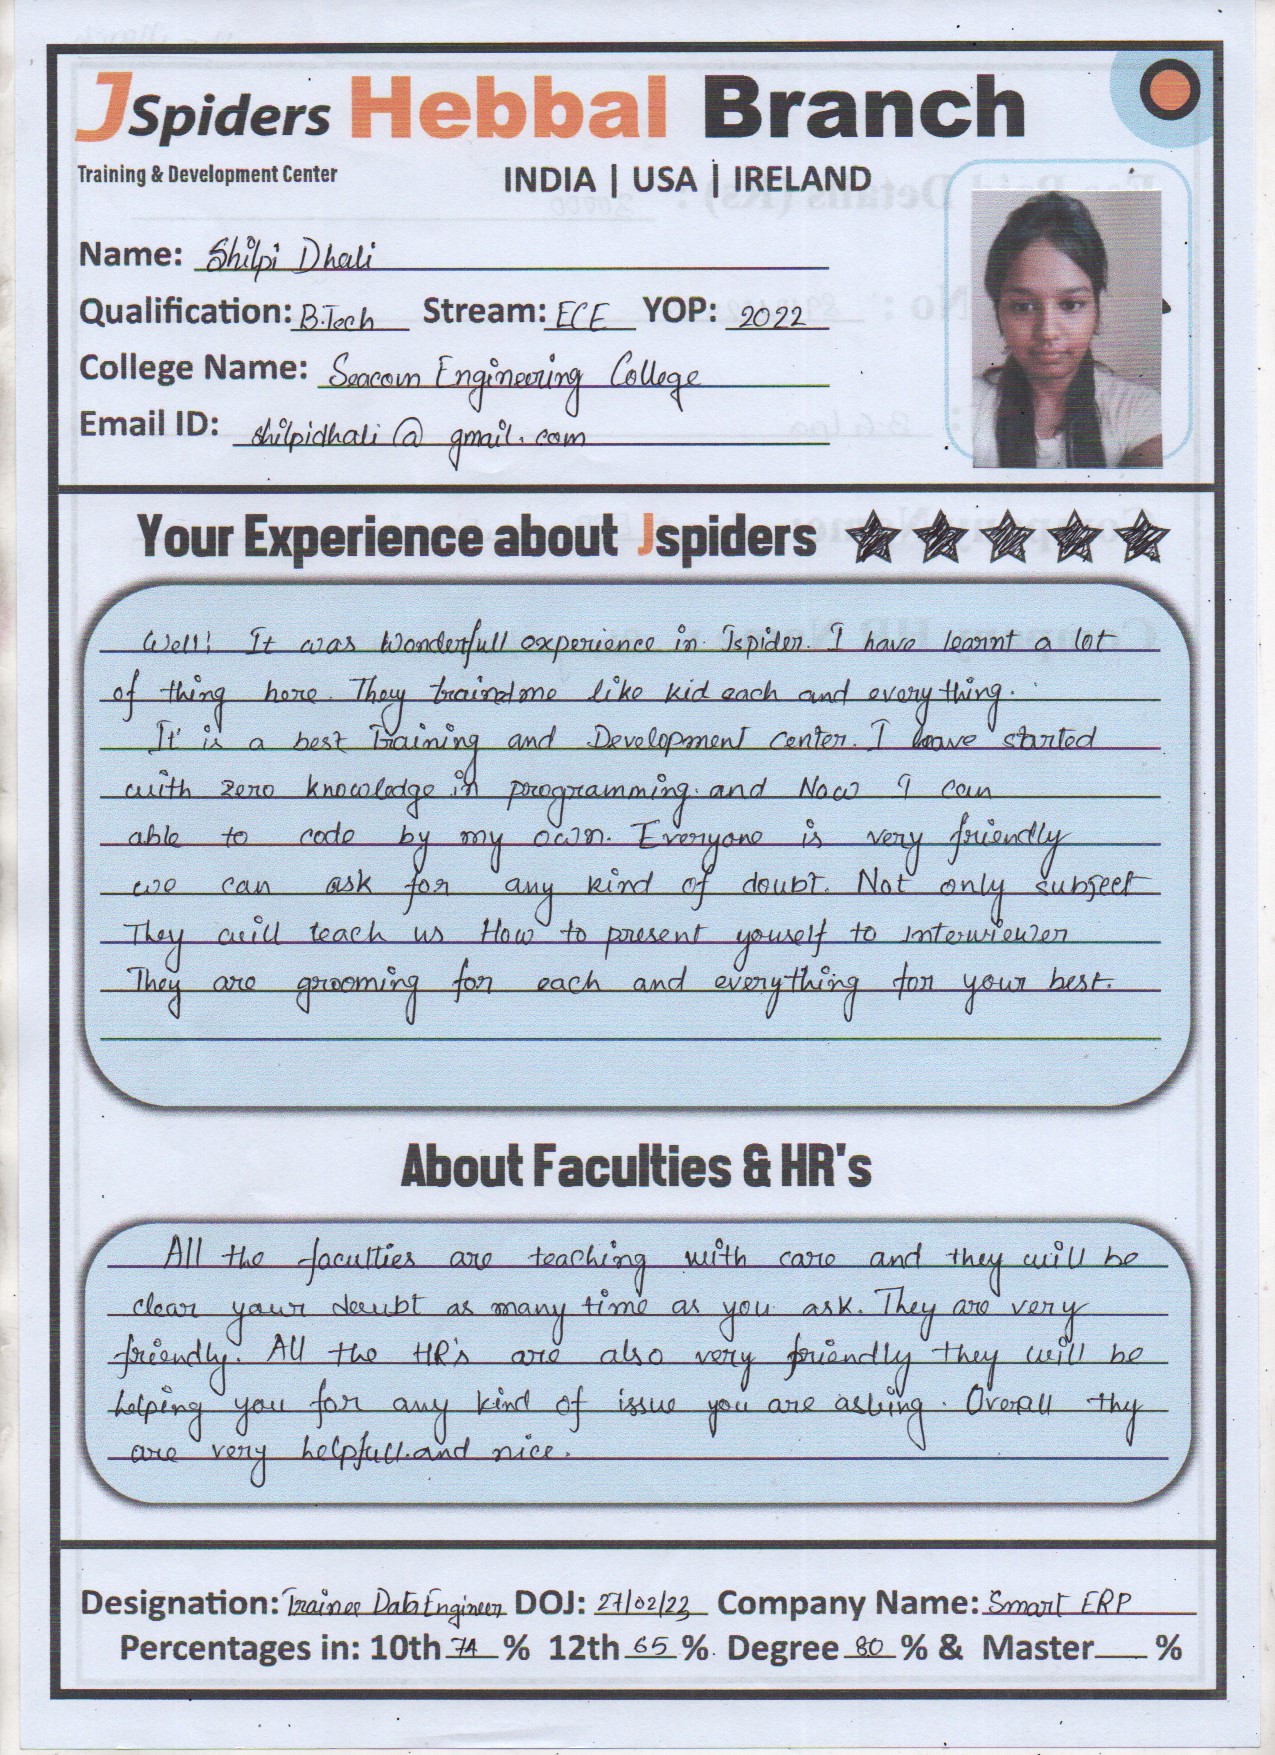 JSpiders Hebbal Branch
Training & Development Center
INDIA | USA | IRELAND
Name: Shilpi Dhali
Qualification: B.Tech Stream: ECE YOP: 2022
College Name: Seacom Engineering College
Email ID: shilpidhali@gmail.com
Your Experience about Jspiders
Well! It was Wonderfull experience in Jspider. I have learnt a lot
of thing here. They traind me like kid each and everything.
It is a best Training and Development center. I have started
with zero knowledge in programming. and Now I can
able to code by my own. Everyone is very friendly
we can ask for any kind of doubt. Not only subject
They will teach us How to present youself to Interwiewer
They are grooming for each and everything for your best.
About Faculties & HR's
All the faculties are teaching with care and they will be
clear your doubt as many time as you ask. They are very
friendly. All the HR's are also very friendly they will be
helping you for any kind of issue you are asking. Overall thy
are very helpfull.and nice.
Designation: Trainee Data Engineer DOJ: 27/02/23 Company Name: Smart ERP
Percentages in: 10th 74 % 12th 65 % Degree 80 % & Master %